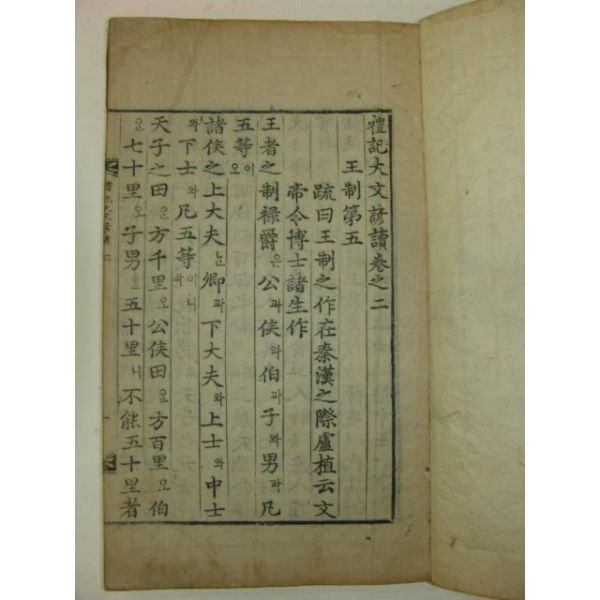 禮記大文諺讀卷之二
王制第五
疏曰王制之作在秦漢之際盧植云文
帝令博士諸生作
王者之制祿爵은公과侯와伯과子와男과凡
五等이오
諸侯之上大夫눈卿과下大夫와上士와中士
와下士와凡五等이니
天子之田은方千里오公侯田은方百里오伯
은七十里오子男은五十里니不能五十里者